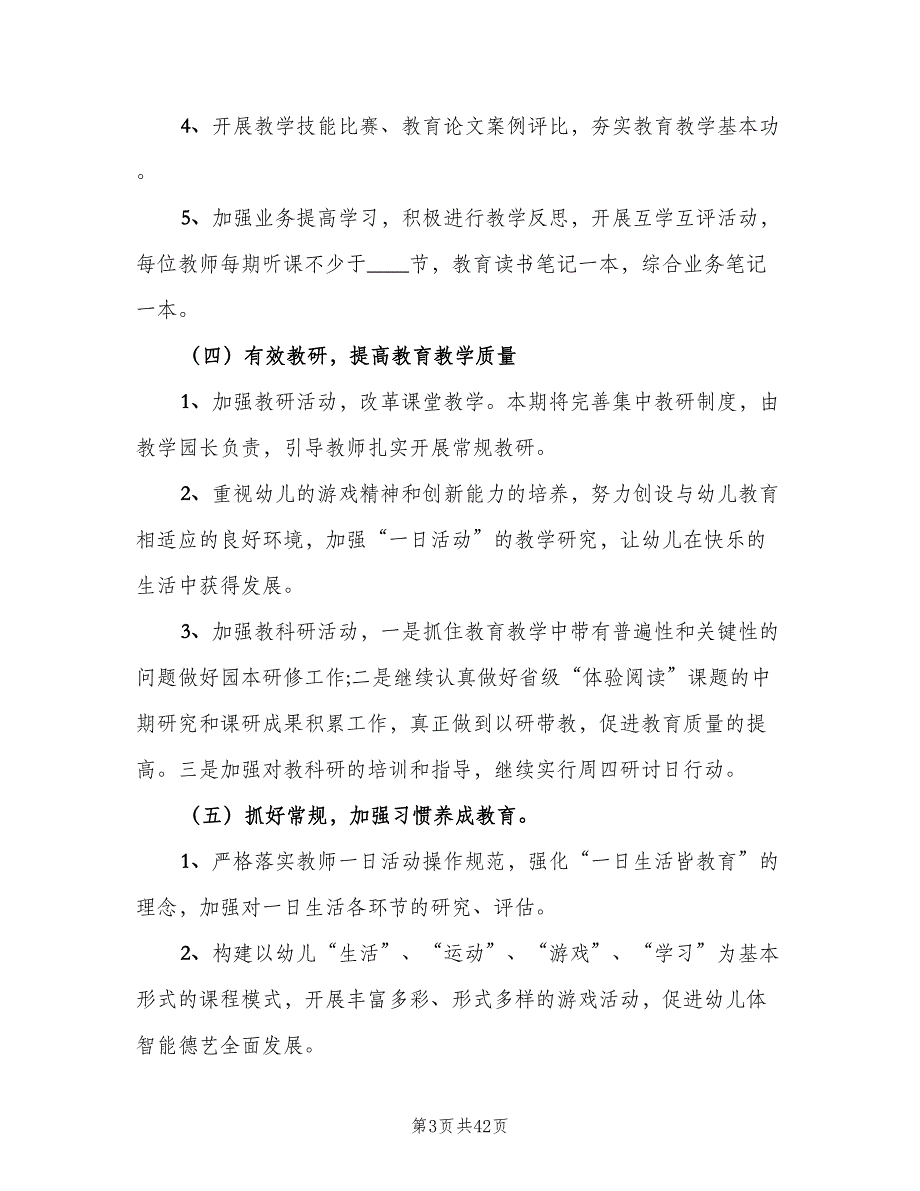 4、开展教学技能比赛、教育论文案例评比，夯实教育教学基本功
。
5、加强业务提高学习，积极进行教学反思，开展互学互评活动，
每位教师每期听课不少于____节，教育读书笔记一本，综合业务笔记
一本。
（四）有效教研，提高教育教学质量
1、加强教研活动，改革课堂教学。本期将完善集中教研制度，由
教学园长负责，引导教师扎实开展常规教研。
2、重视幼儿的游戏精神和创新能力的培养，努力创设与幼儿教育
相适应的良好环境，加强“一日活动”的教学研究，让幼儿在快乐的
生活中获得发展。
3、加强教科研活动，一是抓住教育教学中带有普遍性和关键性的
问题做好园本研修工作;二是继续认真做好省级“体验阅读”课题的中
期研究和课研成果积累工作，真正做到以研带教，促进教育质量的提
高。三是加强对教科研的培训和指导，继续实行周四研讨日行动。
（五）抓好常规，加强习惯养成教育。
1、严格落实教师一日活动操作规范，强化“一日生活皆教育”的
理念，加强对一日生活各环节的研究、评估。
2、构建以幼儿“生活”、“运动”、“游戏”、“学习”为基本
形式的课程模式，开展丰富多彩、形式多样的游戏活动，促进幼儿体
智能德艺全面发展。
第3页共42页